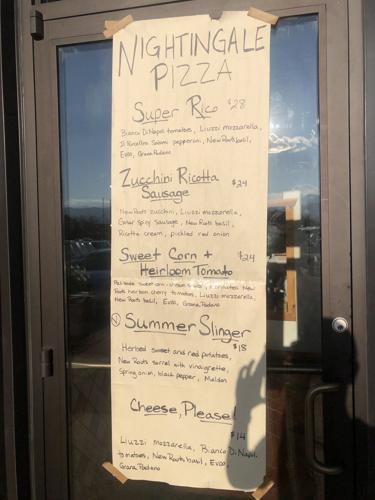 NIGHTINGALE
PIZZA
Super Rico $28
Bianco DiNapoli tomatoes, Liuzzi mozzarella,
Il Porcellino Salami pepperoni, New Roots basil,
Evoo, Grana Padano
Zucchini Ricotta
Sausage $24
New Roots zucchini, Liuzzi mozzarella,
spicy sausage, New Roots basil,
Ricotta cream, pickled red onion
Sweet Corn + $24
Heirloom Tomato
Palisade sweet corn, New
Roots heirloom cherry tomatoes, Liuzzi mozzarella,
New Roots basil, Evoo, Grana Padano
V Summer Slinger
$18
Herbed sweet and red potatoes,
New Roots sorrel with vinaigrette,
Spring onion, black pepper, Maldon
Cheese, Please!
$14
Liuzzi Mozzarella, Bianco Di Napoli
tomatoes, New Roots basil, Evoo,
Grana Padano